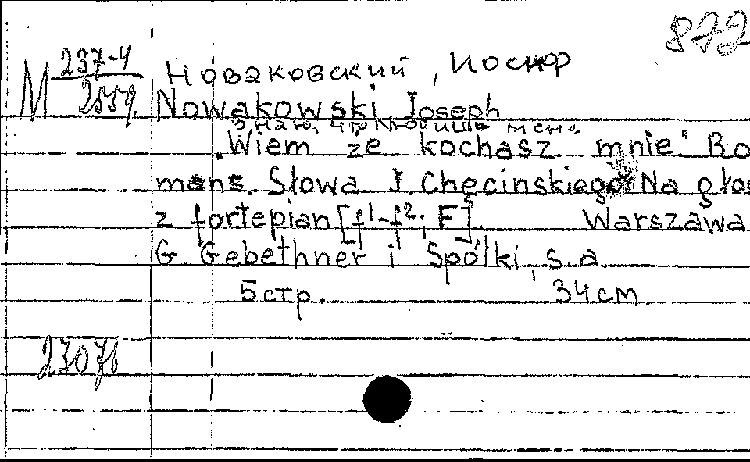 872
М 237-4
2559
Новаковский, Иосиф
Nowakowski Joseph
Знаю, что любишь меня
"Wiem że kochasz mnie" Ro
mans. Słowa J. Chęcinskiego Na głos
z fortepian [f¹-f²; F]. Warszawa
G. Gebethner i Spółki, s.a.
5 стр. 34 см